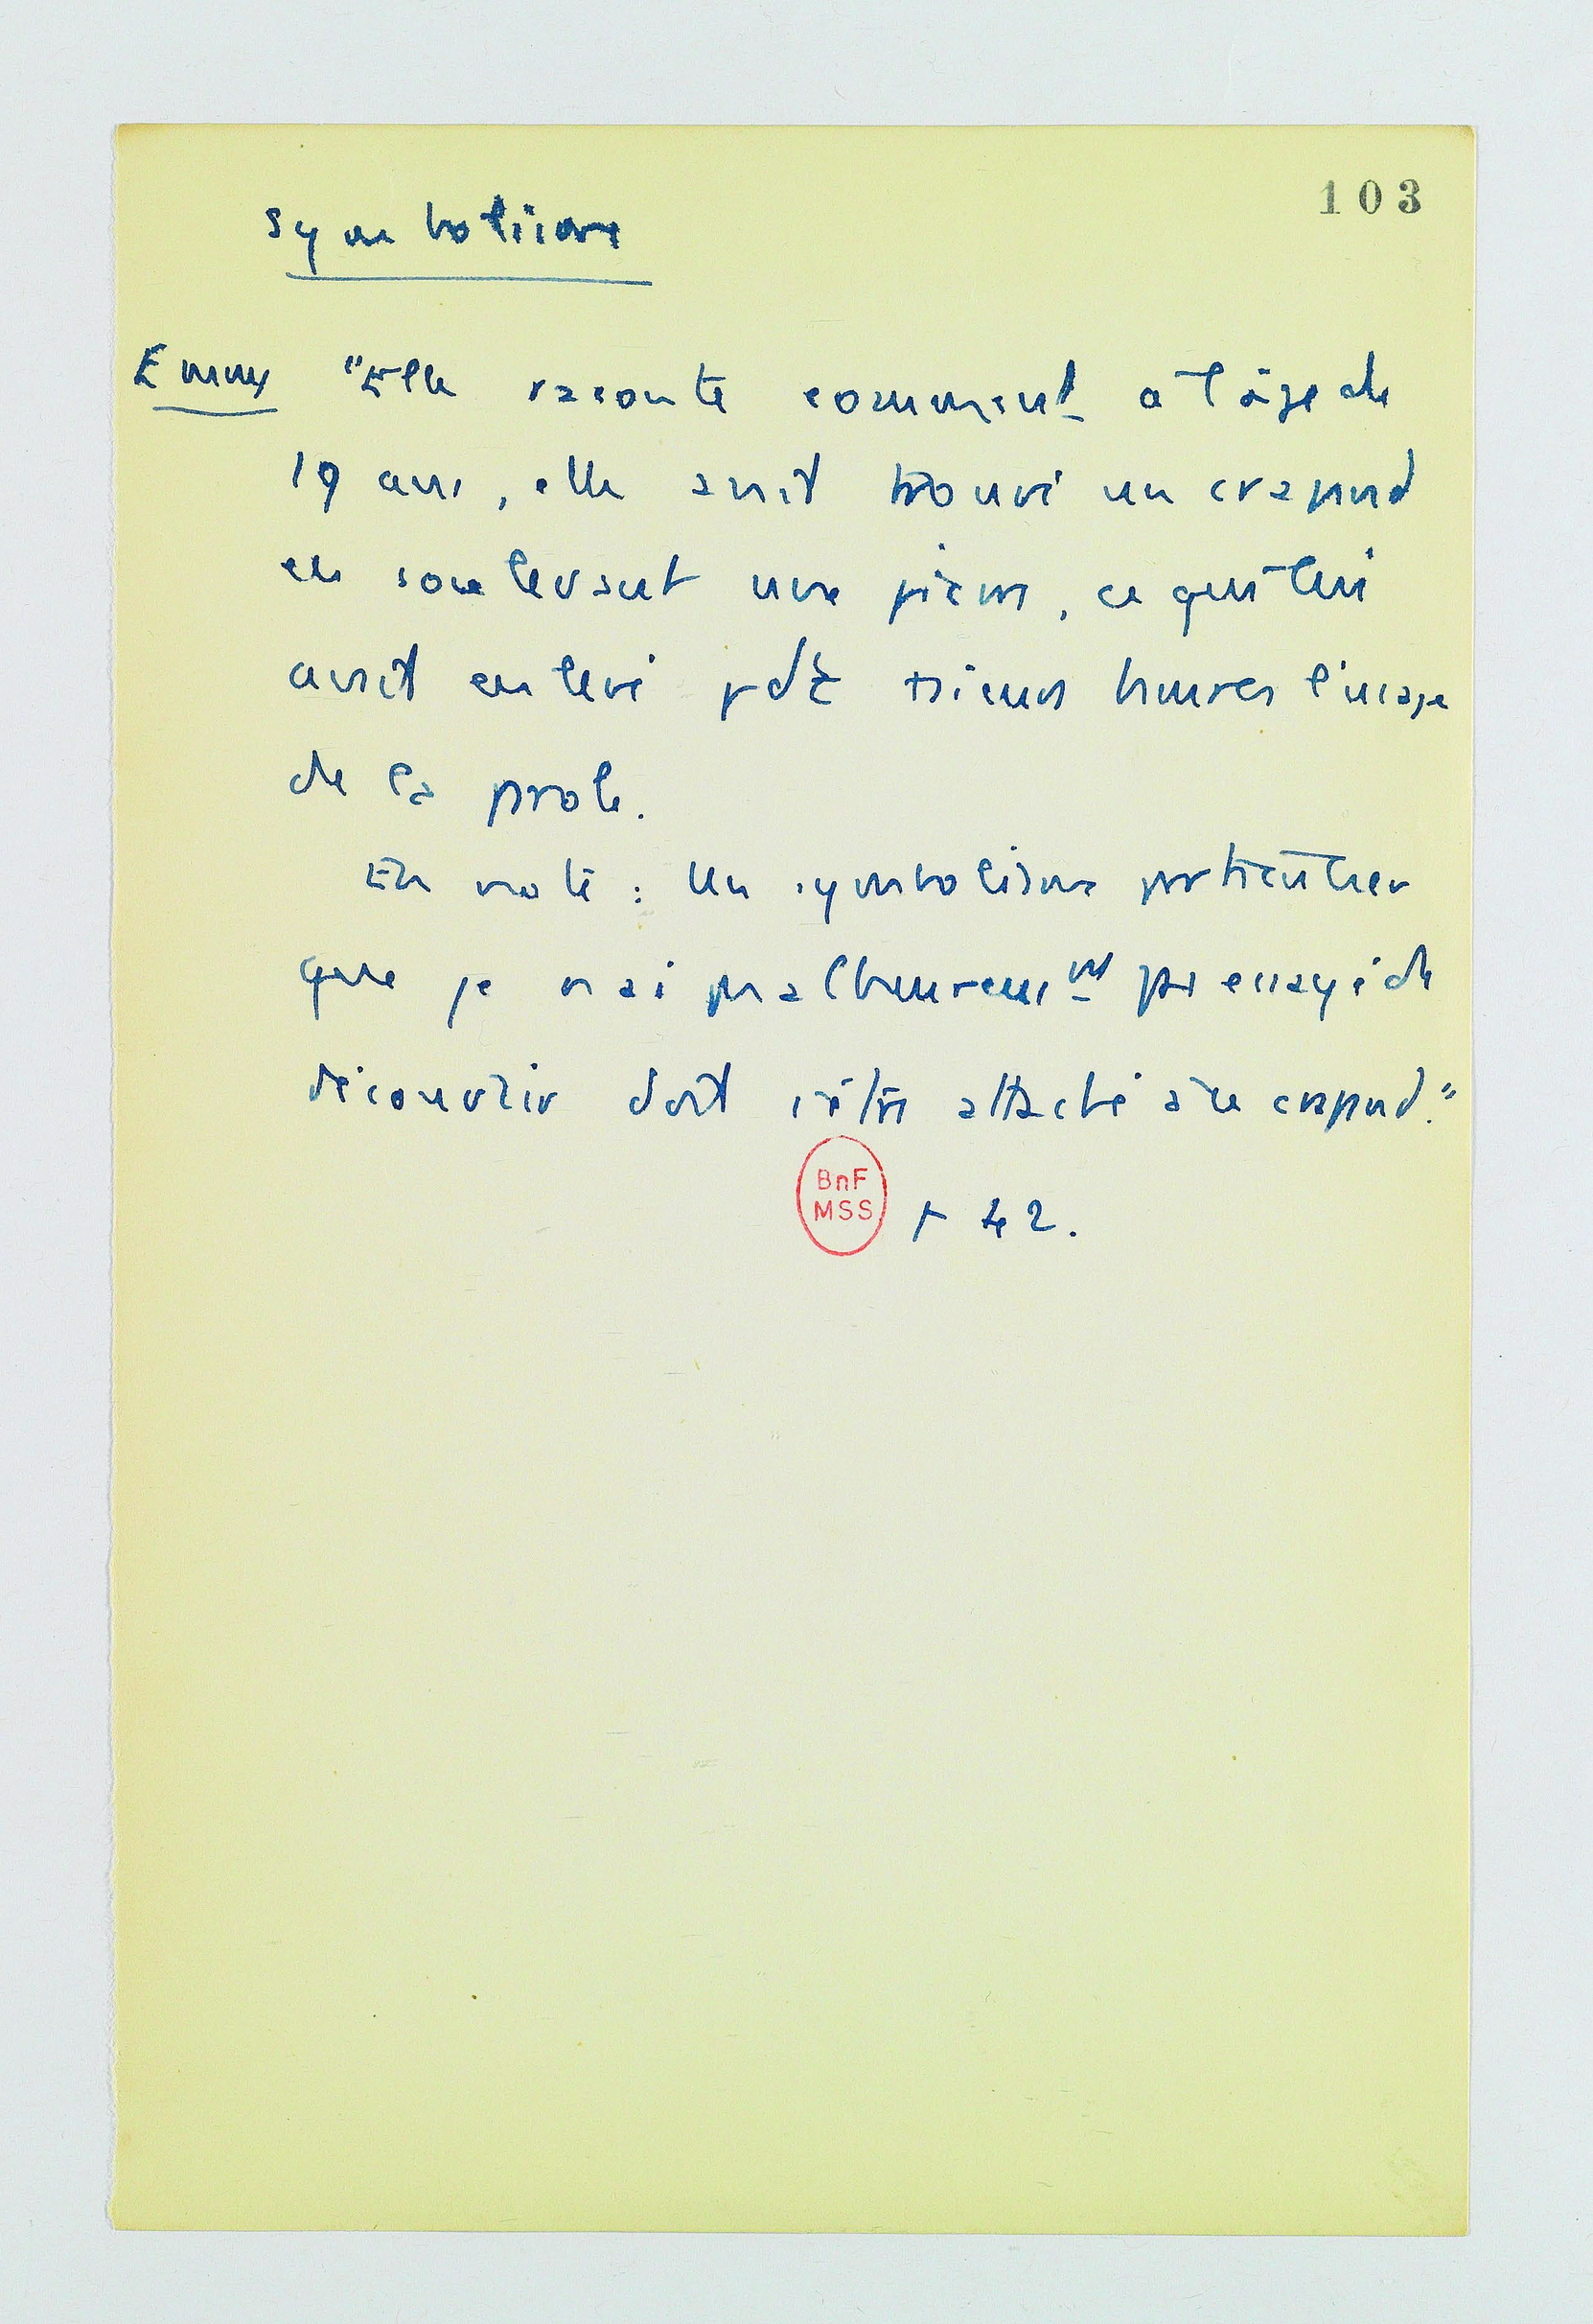 103
Symbolisme
Emmy "Elle raconte comment à l'âge de
19 ans, elle avait trouvé un crapaud
en soulevant une pierre, ce qui lui
avait enlevé pdt plusieurs heures l'usage
de la parole.
En note : Un symbolisme particulier
que je n'ai malheureusmt pas essayé de
découvrir doit être attaché à ce crapaud."
BnF
MSS
p 42.